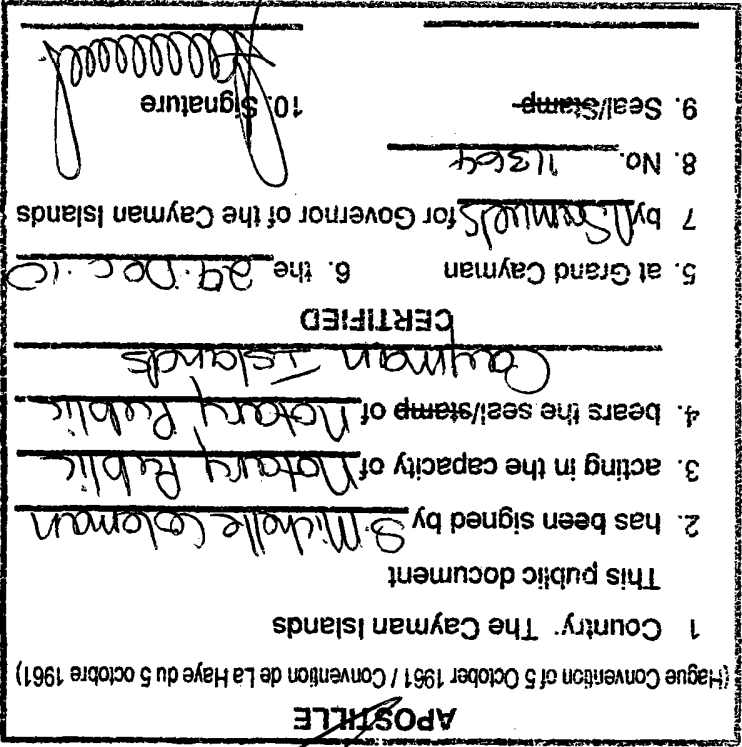 APOSTILLE
(Hague Convention of 5 October 1961 / Convention de La Haye du 5 octobre 1961)
1 Country: The Cayman Islands
This public document
2. has been signed by S. Michelle Coleman
3. acting in the capacity of Notary Public
4. bears the seal/stamp of Notary Public
Cayman Islands
CERTIFIED
5. at Grand Cayman 6. the 29. Dec. 10
7 by Samuels for Governor of the Cayman Islands
8. No. 11364
9. Seal/Stamp 10. Signature